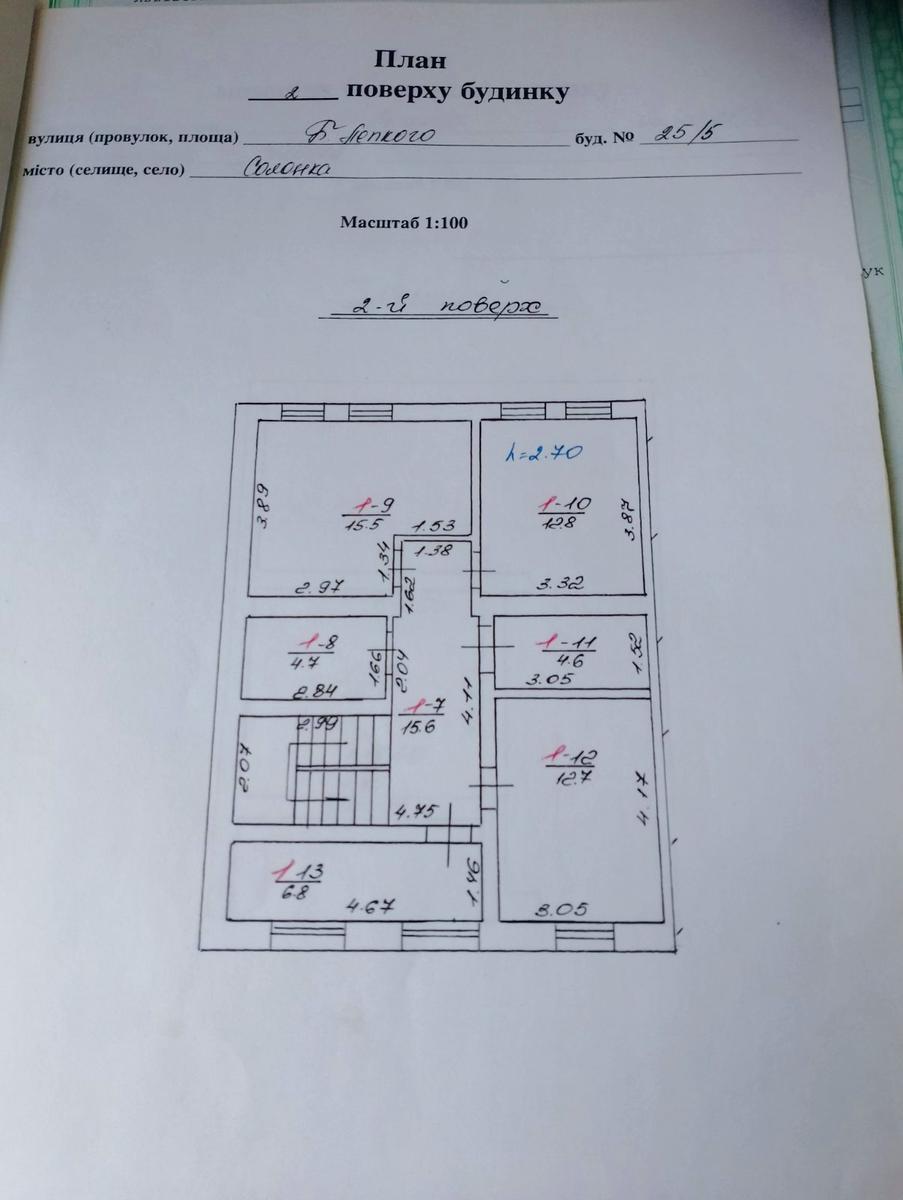 План
2 поверху будинку
вулиця (провулок, площа) Б Лепкого буд. № 25/5
місто (селище, село) Солонка
Масштаб 1:100
ук
2-й поверх
h=2.70
3.89
1-9
15.5
1.53
1-10
12.8
3.87
1.34
1.38
2.97
1.62
3.32
1-8
4.7
1.66
2.04
1-11
4.6
1.52
2.84
3.05
4.11
1-7
15.6
2.99
2.07
1-12
12.7
4.17
4.75
1 13
6.8
4.67
1.46
3.05